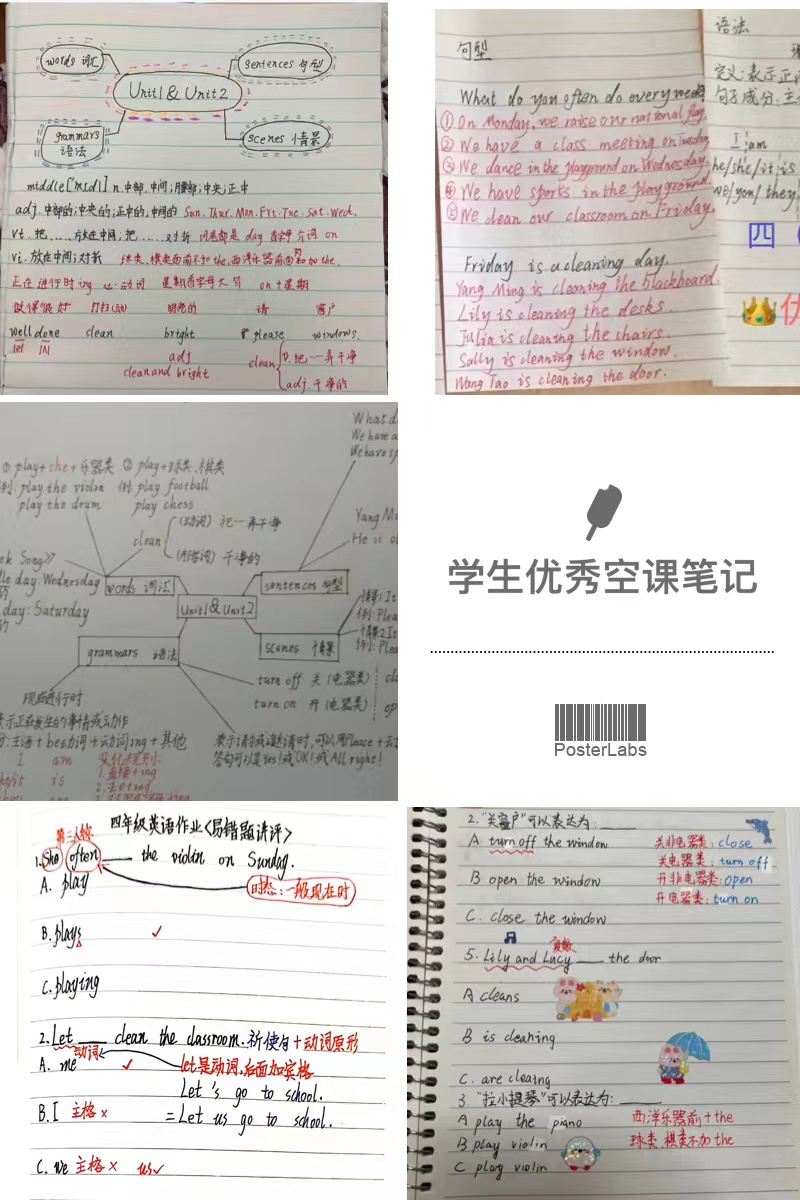 words 词汇
sentences 句型
Unit1 & Unit2
grammars 语法
scenes 情景
middle ['mIdl] n.中部,中间;腰部;中央;正中
adj.中部的;中央的;正中的;中间的 Sun. Thur. Mon. Fri. Tue. Sat. Wed.
vt. 把……放在中间;把……对折 词尾都是 day 首字 介词 on
vi. 放在中间;对折 球类、棋类前不加the,西洋乐器前面加the.
正在进行时 ing 动词 星期首字母大写 on+星期
做得很好 打扫(动) 明亮的 请 窗户
well done clean bright please windows.
adj
clean and bright
clean
v.把…弄干净
adj.干净的
句型
What do you often do every week?
①On Monday, we raise our national flag.
②We have a class meeting on Tuesday.
③We dance in the playground on Wednesday.
④We have sports in the playground.
⑤We clean our classroom on Friday.
Friday is a cleaning day.
Yang Ming is cleaning the blackboard.
Lily is cleaning the desks.
Julia is cleaning the chairs.
Sally is cleaning the window.
Wang Tao is cleaning the door.
语法
定义:表示正
句子成分:主
I am
he/she/it is
we/you/they
四
优
What d
We have a
We have sp
① play+the+乐器类 ② play+球类、棋类
例: play the violin 例: play football
play the drum play chess
clean
(动词) 把…弄干净
(形容词) 干净的
Yang M
He is cl
ek Song》
lle day: Wednesday
day: Saturday
words 词汇
sentences 句型
Unit1 & Unit2
grammars 语法
scenes 情景
情景1: It
例: Plea
情景2 It
例: Plea
turn off 关 (电器类) clo
turn on 开 (电器类) op
现在进行时
表示正在发生的事情或动作
主语+be动词+动词ing+其他
I am
he/it is
变化规则:
1.直接+ing
2.去e+ing
表示请求或邀请时,可以用Please+
答句可以是Yes!或OK!或All right!
学生优秀空课笔记
PosterLabs
四年级英语作业<易错题讲评>
第三人称
1. She often ___ the violin on Sunday.
A. play
时态:一般现在时
B. plays ✓
C. playing
2. Let ___ clean the classroom. 祈使句+动词原形
动词
A. me ✓ let是动词,后面加宾格
Let's go to school.
B. I 主格× =Let us go to school.
C. we 主格× us✓
2."关窗户"可以表达为:____
A turn off the window
关非电器类: close
关电器类: turn off
B open the window
开非电器类: open
开电器类: turn on
C. close the window
复数
5. Lily and Lucy ___ the door
A cleans
B is cleaning
C. are cleaing
3."拉小提琴"可以表达为:____
A play the piano 西洋乐器前+the
B play violin 球类、棋类不加the
C play violin